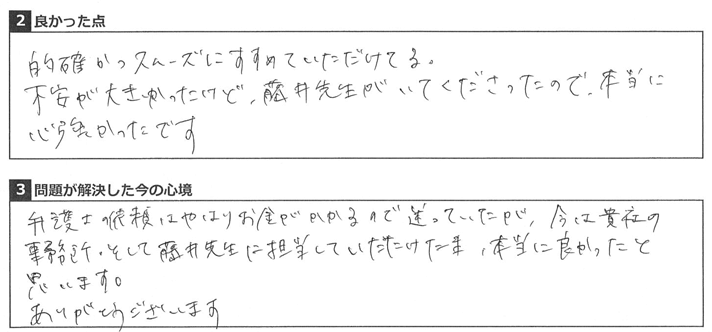 2 良かった点
的確かつスムーズにすすめていただけてる。
不安が大きかったけど、藤井先生がいてくださったので、本当に
心強かったです
3 問題が解決した今の心境
弁護士の依頼はやはりお金がかかるので迷っていたが、今は貴社の
事務所、そして藤井先生に担当していただけたまま、本当に良かったと
思います。
ありがとうございます